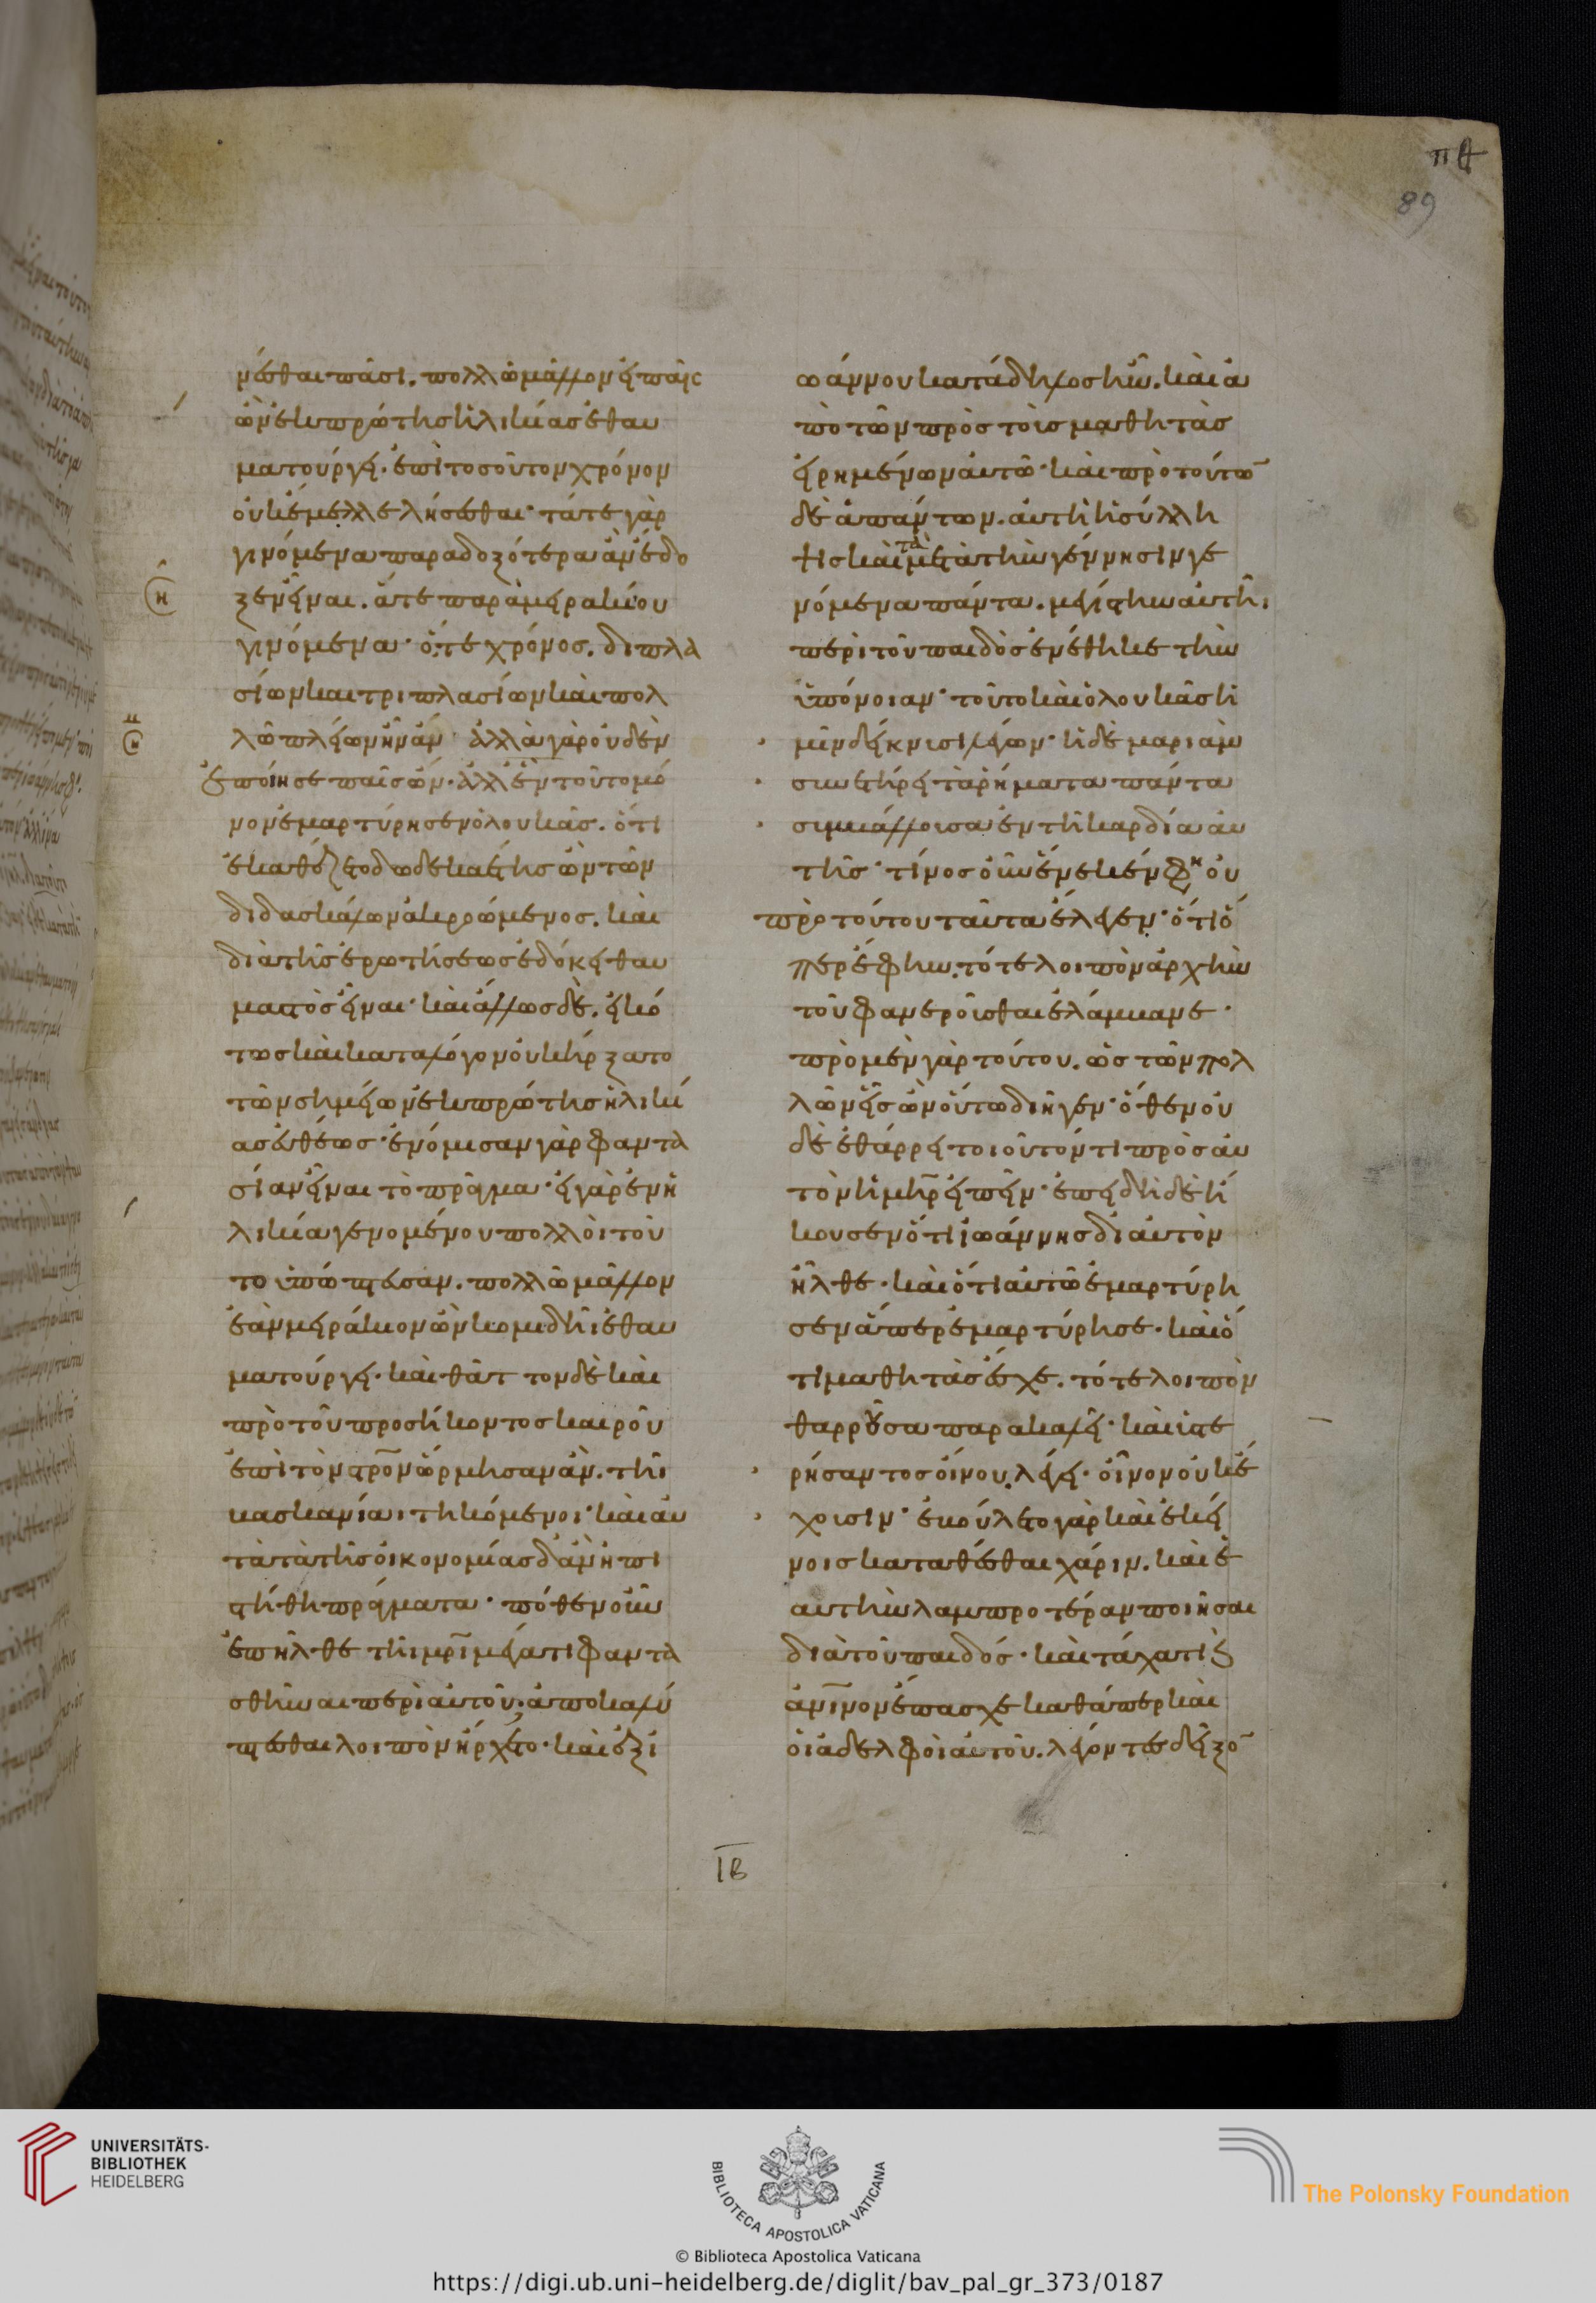 νέσθαι πᾶσι. πολλῶ μᾶλλον εἰ παῖς
ὢν ἐκ πρώτης ἡλικίας ἐθαυ
ματούργει. ἐπὶ τοσοῦτον χρόνον
οὐκ ἔμελλε λήσεσθαι· τά τε γὰρ
γινόμενα παραδοξότερα ἂν ἔδο
ξεν εἶναι. ἅτε παρὰ μειρακίου
γινόμενα· ὅ τε χρόνος. διπλα
σίων καὶ τριπλασίων καὶ πολ
λῶ πλείων ἦν ἄν· ἀλλὰ γὰρ οὐδὲν
ἐποίησε παῖς ὤν· ἀλλ' ἓν τοῦτο μό
νον ἐμαρτύρησεν ὁ λουκᾶς. ὅτι
ἐκαθέζετο δωδεκαέτης ὢν τῶν
διδασκάλων ἀκροώμενος. καὶ
διὰ τῆς ἐρωτήσεως ἐδόκει θαυ
μαστὸς εἶναι· καὶ ἄλλως δὲ. εἰκό
τως καὶ κατὰ λόγον οὐκ ἤρξατο
τῶν σημείων ἐκ πρώτης ἡλικί
ας εὐθέως· ἐνόμισαν γὰρ φαντα
σίαν εἶναι τὸ πρᾶγμα· εἰ γὰρ ἐν ἡ
λικία γενομένου πολλοὶ τοῦ
το ὑπώπτευσαν. πολλῶ μᾶλλον
ἐὰν μειράκιον ὢν κομιδῆι ἐθαυ
ματούργει· καὶ θᾶττον δὲ καὶ
πρὸ τοῦ προσήκοντος καιροῦ
ἐπὶ τὸν στρον ὥρμησαν ἄν. τῆι
βασκανίαι τηκόμενοι· καὶ αὐ
τὰ τὰ τῆς οἰκονομίας δ' ἂν ἠπι
στήθη πράγματα· πόθεν οὖν
ἐπῆλθε τῆι μρι μέγα τι φαντα
σθῆναι περὶ αὐτοῦ; ἀποκαλύ
πτεσθαι λοιπὸν ἤρχετο· καὶ ἐξ ἰ
ωάννου κατάδηλος ἦν. καὶ ἀ
πὸ τῶν πρὸς τοὺς μαθητὰς
εἰρημένων αὐτῶ· καὶ πρὸ τούτω
δὲ ἁπάντων. αὐτὴ ἡ σύλλη
ψις καὶ τὰ μετὰ τὴν γέννησιν γε
νόμενα πάντα. μεγίστην αὐτῆι
περὶ τοῦ παιδὸς ἐνέθηκε τὴν
ὑπόνοιαν· τοῦτο καὶ ὁ λουκᾶς ἡ
μῖν δεικνὺς λέγων· ἡ δὲ μαριὰμ
συνετήρει τὰ ῥήματα πάντα
συμβάλλουσα ἐν τῆ καρδία αὐ
τῆς· τίνος οὖν ἕνεκεν φη οὐ
πρὸ τούτου ταῦτα ἔλεγεν· ὅτι ὅ
περ ἔφην. τότε λοιπὸν ἀρχὴν
τοῦ φανεροῦσθαι ἐλάμβανε·
πρὸ μὲν γὰρ τούτου. ὡς τῶν πολ
λῶν εἷς ὢν οὕτω διῆγεν· ὅθεν οὐ
δὲ ἐθάρρει τοιοῦτόν τι πρὸς αὐ
τὸν ἡ μηρ εἰπεῖν· ἐπειδὴ δὲ ἤ
κουσεν ὅτι ἰωάννης δι αὐτὸν
ἦλθε· καὶ ὅτι αὐτῶ ἐμαρτύρη
σεν ἅπερ ἐμαρτύρησε· καὶ ὅ
τι μαθητὰς ἔσχε. τότε λοιπὸν
θαρροῦσα παρακαλεῖ· καὶ ὑστε
ρήσαντος οἴνου. λέγει· οἶνον οὐκ ἔ
χουσιν· ἐβούλετο γὰρ καὶ ἐκεί
νοις καταθέσθαι χάριν. καὶ ἑ
αυτὴν λαμπροτέραν ποιῆσαι
διὰ τοῦ παιδός· καὶ τάχα τι
ἀνινον ἔπασχε καθάπερ καὶ
οἱ ἀδελφοὶ αὐτοῦ. λέγοντες δεῖξο
ΙΒ
πθ
89
UNIVERSITÄTS-
BIBLIOTHEK
HEIDELBERG
BIBLIOTECA APOSTOLICA VATICANA
The Polonsky Foundation
© Biblioteca Apostolica Vaticana
https://digi.ub.uni-heidelberg.de/diglit/bav_pal_gr_373/0187